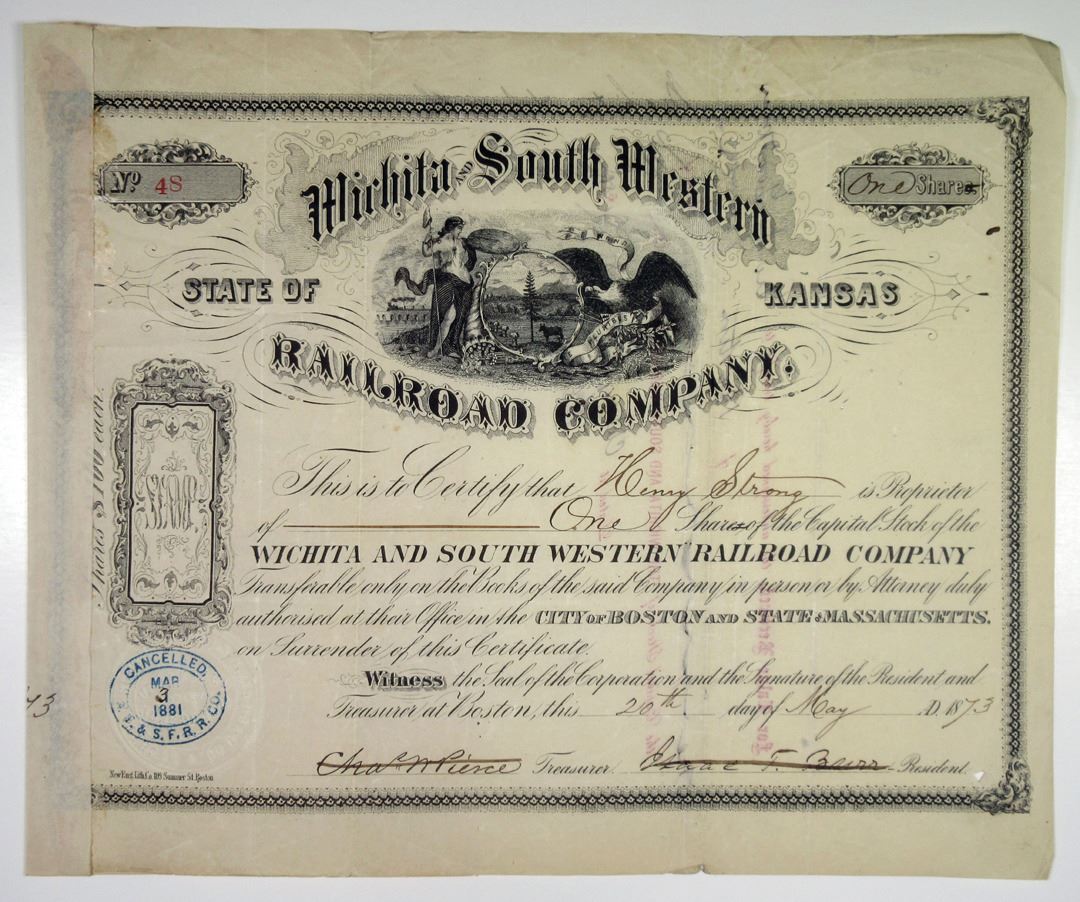 No 48
One Shares
Wichita AND South Western
STATE OF KANSAS
RAILROAD COMPANY.
Shares $100 each.
This is to Certify that Henry Strong is Proprietor
of One Shares of the Capital Stock of the
WICHITA AND SOUTH WESTERN RAILROAD COMPANY
Transferable only on the Books of the said Company in person or by Attorney duly
authorised at their Office in the CITY OF BOSTON AND STATE OF MASSACHUSETTS,
on Surrender of this Certificate.
Witness the Seal of the Corporation and the Signature of the President and
Treasurer at Boston, this 26th day of May A.D. 1873
Chas W Pierce Treasurer. Isaac T. Burr President.
CANCELLED.
MAR
3
1881
T. & S. F. R. R. CO.
New Eng. Lith. Co. 109 Summer St. Boston